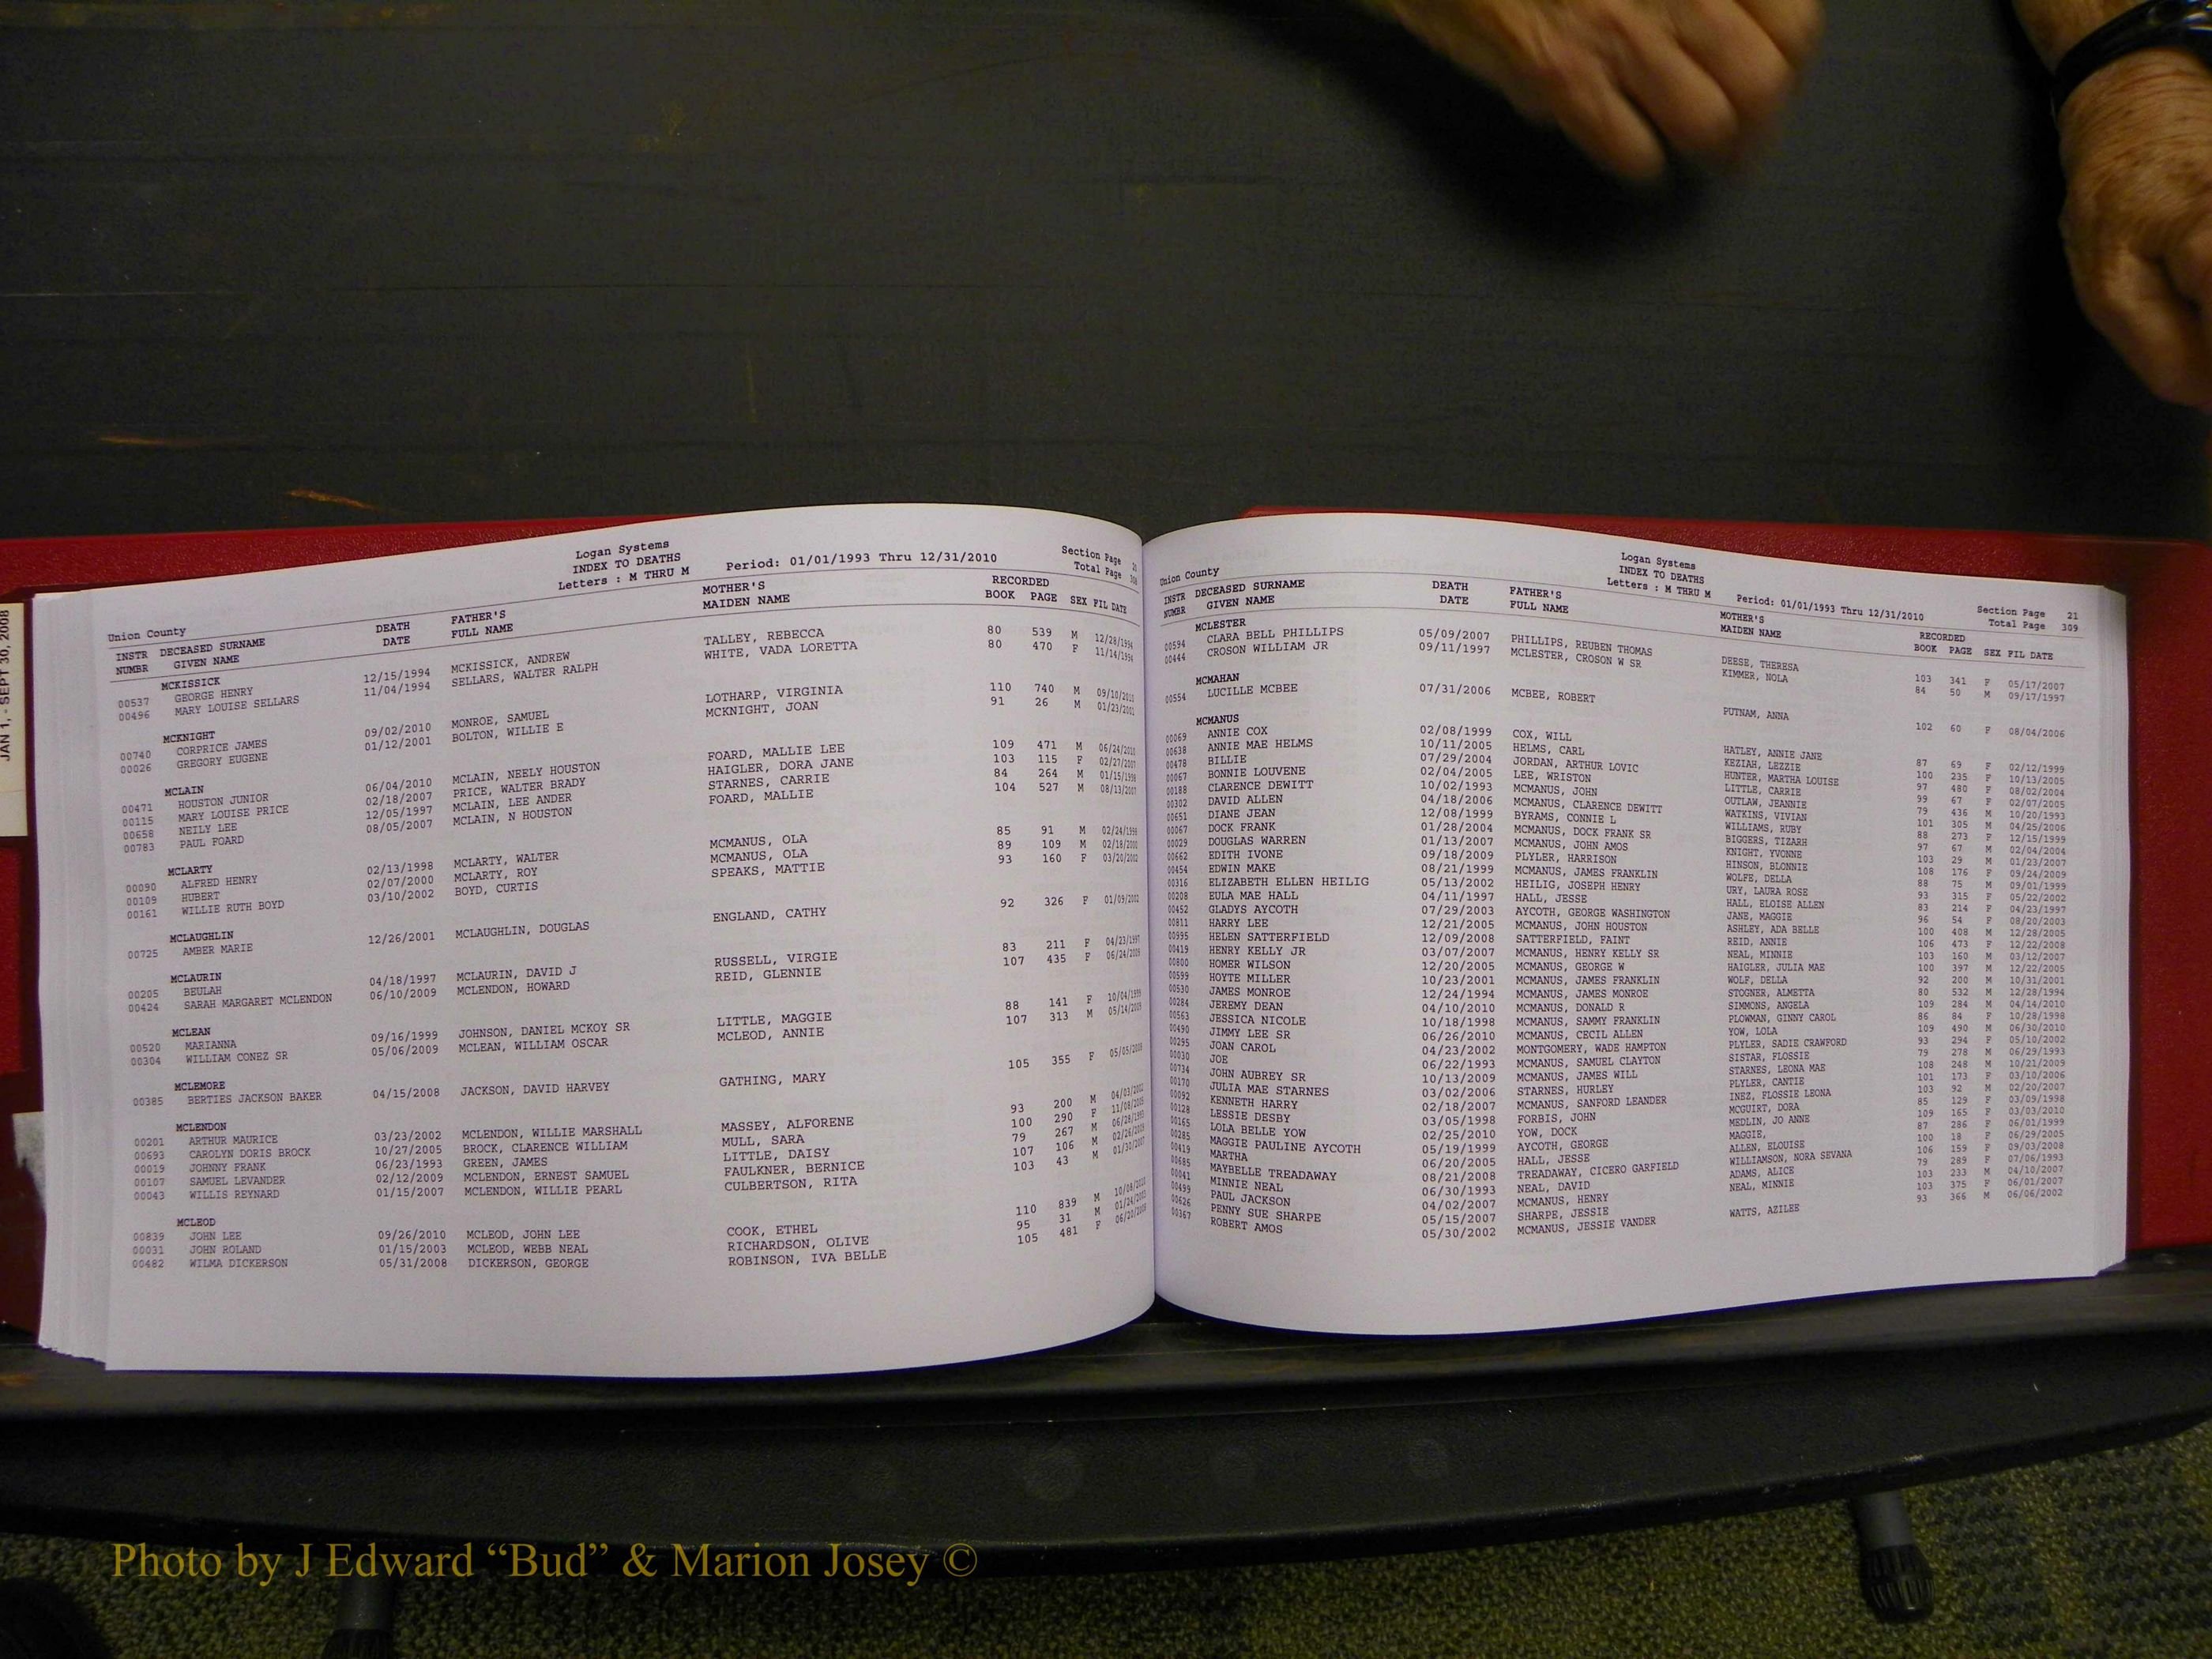 JAN 1, - SEPT 30, 2008
Logan Systems
INDEX TO DEATHS
Letters : M THRU M Period: 01/01/1993 Thru 12/31/2010
Section Page
Total Page
Union County
INSTR DECEASED SURNAME DEATH FATHER'S MOTHER'S RECORDED
NUMBR GIVEN NAME DATE FULL NAME MAIDEN NAME BOOK PAGE SEX FIL DATE
MCKISSICK
00537 GEORGE HENRY 12/15/1994 MCKISSICK, ANDREW TALLEY, REBECCA 80 539 M 12/28/1994
00496 MARY LOUISE SELLARS 11/04/1994 SELLARS, WALTER RALPH WHITE, VADA LORETTA 80 470 F 11/14/1994
MCKNIGHT
00740 CORPRICE JAMES 09/02/2010 MONROE, SAMUEL LOTHARP, VIRGINIA 110 740 M 09/10/2010
00026 GREGORY EUGENE 01/12/2001 BOLTON, WILLIE E MCKNIGHT, JOAN 91 26 M 01/23/2001
MCLAIN
00471 HOUSTON JUNIOR 06/04/2010 MCLAIN, NEELY HOUSTON FOARD, MALLIE LEE 109 471 M 06/24/2010
00115 MARY LOUISE PRICE 02/18/2007 PRICE, WALTER BRADY HAIGLER, DORA JANE 103 115 F 02/27/2007
00658 NEILY LEE 12/05/1997 MCLAIN, LEE ANDER STARNES, CARRIE 84 264 M 01/15/1998
00783 PAUL FOARD 08/05/2007 MCLAIN, N HOUSTON FOARD, MALLIE 104 527 M 08/13/2007
MCLARTY
00090 ALFRED HENRY 02/13/1998 MCLARTY, WALTER MCMANUS, OLA 85 91 M 02/24/1998
00109 HUBERT 02/07/2000 MCLARTY, ROY MCMANUS, OLA 89 109 M 02/18/2000
00161 WILLIE RUTH BOYD 03/10/2002 BOYD, CURTIS SPEAKS, MATTIE 93 160 F 03/20/2002
MCLAUGHLIN
00725 AMBER MARIE 12/26/2001 MCLAUGHLIN, DOUGLAS ENGLAND, CATHY 92 326 F 01/09/2002
MCLAURIN
00205 BEULAH 04/18/1997 MCLAURIN, DAVID J RUSSELL, VIRGIE 83 211 F 04/23/1997
00424 SARAH MARGARET MCLENDON 06/10/2009 MCLENDON, HOWARD REID, GLENNIE 107 435 F 06/24/2009
MCLEAN
00520 MARIANNA 09/16/1999 JOHNSON, DANIEL MCKOY SR LITTLE, MAGGIE 88 141 F 10/04/1999
00304 WILLIAM CONEZ SR 05/06/2009 MCLEAN, WILLIAM OSCAR MCLEOD, ANNIE 107 313 M 05/14/2009
MCLEMORE
00385 BERTIES JACKSON BAKER 04/15/2008 JACKSON, DAVID HARVEY GATHING, MARY 105 355 F 05/05/2008
MCLENDON
00201 ARTHUR MAURICE 03/23/2002 MCLENDON, WILLIE MARSHALL MASSEY, ALFORENE 93 200 M 04/03/2002
00693 CAROLYN DORIS BROCK 10/27/2005 BROCK, CLARENCE WILLIAM MULL, SARA 100 290 F 11/08/2005
00019 JOHNNY FRANK 06/23/1993 GREEN, JAMES LITTLE, DAISY 79 267 M 06/28/1993
00107 SAMUEL LEVANDER 02/12/2009 MCLENDON, ERNEST SAMUEL FAULKNER, BERNICE 107 106 M 02/26/2009
00043 WILLIS REYNARD 01/15/2007 MCLENDON, WILLIE PEARL CULBERTSON, RITA 103 43 M 01/30/2007
MCLEOD
00839 JOHN LEE 09/26/2010 MCLEOD, JOHN LEE COOK, ETHEL 110 839 M 10/08/2010
00031 JOHN ROLAND 01/15/2003 MCLEOD, WEBB NEAL RICHARDSON, OLIVE 95 31 M 01/24/2003
00482 WILMA DICKERSON 05/31/2008 DICKERSON, GEORGE ROBINSON, IVA BELLE 105 481 F 06/20/2008
Logan Systems
INDEX TO DEATHS
Letters : M THRU M Period: 01/01/1993 Thru 12/31/2010
Section Page 21
Total Page 309
Union County
INSTR DECEASED SURNAME DEATH FATHER'S MOTHER'S RECORDED
NUMBR GIVEN NAME DATE FULL NAME MAIDEN NAME BOOK PAGE SEX FIL DATE
MCLESTER
00594 CLARA BELL PHILLIPS 05/09/2007 PHILLIPS, REUBEN THOMAS DEESE, THERESA 103 341 F 05/17/2007
00444 CROSON WILLIAM JR 09/11/1997 MCLESTER, CROSON W SR KIMMER, NOLA 84 50 M 09/17/1997
MCMAHAN
00554 LUCILLE MCBEE 07/31/2006 MCBEE, ROBERT PUTNAM, ANNA 102 60 F 08/04/2006
MCMANUS
00069 ANNIE COX 02/08/1999 COX, WILL HATLEY, ANNIE JANE 87 69 F 02/12/1999
00638 ANNIE MAE HELMS 10/11/2005 HELMS, CARL KEZIAH, LEZZIE 100 235 F 10/13/2005
00478 BILLIE 07/29/2004 JORDAN, ARTHUR LOVIC HUNTER, MARTHA LOUISE 97 480 F 08/02/2004
00067 BONNIE LOUVENE 02/04/2005 LEE, WRISTON LITTLE, CARRIE 99 67 F 02/07/2005
00188 CLARENCE DEWITT 10/02/1993 MCMANUS, JOHN OUTLAW, JEANNIE 79 436 M 10/20/1993
00302 DAVID ALLEN 04/18/2006 MCMANUS, CLARENCE DEWITT WATKINS, VIVIAN 101 305 M 04/25/2006
00651 DIANE JEAN 12/08/1999 BYRAMS, CONNIE L WILLIAMS, RUBY 88 273 F 12/15/1999
00067 DOCK FRANK 01/28/2004 MCMANUS, DOCK FRANK SR BIGGERS, TIZARH 97 67 M 02/04/2004
00029 DOUGLAS WARREN 01/13/2007 MCMANUS, JOHN AMOS KNIGHT, YVONNE 103 29 M 01/23/2007
00662 EDITH IVONE 09/18/2009 PLYLER, HARRISON HINSON, BLONNIE 108 176 F 09/24/2009
00454 EDWIN MAKE 08/21/1999 MCMANUS, JAMES FRANKLIN WOLFE, DELLA 88 75 M 09/01/1999
00316 ELIZABETH ELLEN HEILIG 05/13/2002 HEILIG, JOSEPH HENRY URY, LAURA ROSE 93 315 F 05/22/2002
00208 EULA MAE HALL 04/11/1997 HALL, JESSE HALL, ELOISE ALLEN 83 214 F 04/23/1997
00452 GLADYS AYCOTH 07/29/2003 AYCOTH, GEORGE WASHINGTON JANE, MAGGIE 96 54 F 08/20/2003
00811 HARRY LEE 12/21/2005 MCMANUS, JOHN HOUSTON ASHLEY, ADA BELLE 100 408 M 12/28/2005
00995 HELEN SATTERFIELD 12/09/2008 SATTERFIELD, FAINT REID, ANNIE 106 473 F 12/22/2008
00419 HENRY KELLY JR 03/07/2007 MCMANUS, HENRY KELLY SR NEAL, MINNIE 103 160 M 03/12/2007
00800 HOMER WILSON 12/20/2005 MCMANUS, GEORGE W HAIGLER, JULIA MAE 100 397 M 12/22/2005
00599 HOYTE MILLER 10/23/2001 MCMANUS, JAMES FRANKLIN WOLF, DELLA 92 200 M 10/31/2001
00530 JAMES MONROE 12/24/1994 MCMANUS, JAMES MONROE STOGNER, ALMETTA 80 532 M 12/28/1994
00284 JEREMY DEAN 04/10/2010 MCMANUS, DONALD R SIMMONS, ANGELA 109 284 M 04/14/2010
00563 JESSICA NICOLE 10/18/1998 MCMANUS, SAMMY FRANKLIN PLOWMAN, GINNY CAROL 86 84 F 10/28/1998
00490 JIMMY LEE SR 06/26/2010 MCMANUS, CECIL ALLEN YOW, LOLA 109 490 M 06/30/2010
00295 JOAN CAROL 04/23/2002 MONTGOMERY, WADE HAMPTON PLYLER, SADIE CRAWFORD 93 294 F 05/10/2002
00030 JOE 06/22/1993 MCMANUS, SAMUEL CLAYTON SISTAR, FLOSSIE 79 278 M 06/29/1993
00734 JOHN AUBREY SR 10/13/2009 MCMANUS, JAMES WILL STARNES, LEONA MAE 108 248 M 10/21/2009
00170 JULIA MAE STARNES 03/02/2006 STARNES, HURLEY PLYLER, CANTIE 101 173 F 03/10/2006
00092 KENNETH HARRY 02/18/2007 MCMANUS, SANFORD LEANDER INEZ, FLOSSIE LEONA 103 92 M 02/20/2007
00128 LESSIE DESBY 03/05/1998 FORBIS, JOHN MCGUIRT, DORA 85 129 F 03/09/1998
00165 LOLA BELLE YOW 02/25/2010 YOW, DOCK MEDLIN, JO ANNE 109 165 F 03/03/2010
00285 MAGGIE PAULINE AYCOTH 05/19/1999 AYCOTH, GEORGE MAGGIE, 87 286 F 06/01/1999
00419 MARTHA 06/20/2005 HALL, JESSE ALLEN, ELOUISE 100 18 F 06/29/2005
00685 MAYBELLE TREADAWAY 08/21/2008 TREADAWAY, CICERO GARFIELD WILLIAMSON, NORA SEVANA 106 159 F 09/03/2008
00041 MINNIE NEAL 06/30/1993 NEAL, DAVID ADAMS, ALICE 79 289 F 07/06/1993
00499 PAUL JACKSON 04/02/2007 MCMANUS, HENRY NEAL, MINNIE 103 233 M 04/10/2007
00626 PENNY SUE SHARPE 05/15/2007 SHARPE, JESSIE 103 375 F 06/01/2007
00367 ROBERT AMOS 05/30/2002 MCMANUS, JESSIE VANDER WATTS, AZILEE 93 366 M 06/06/2002
Photo by J Edward “Bud” & Marion Josey ©